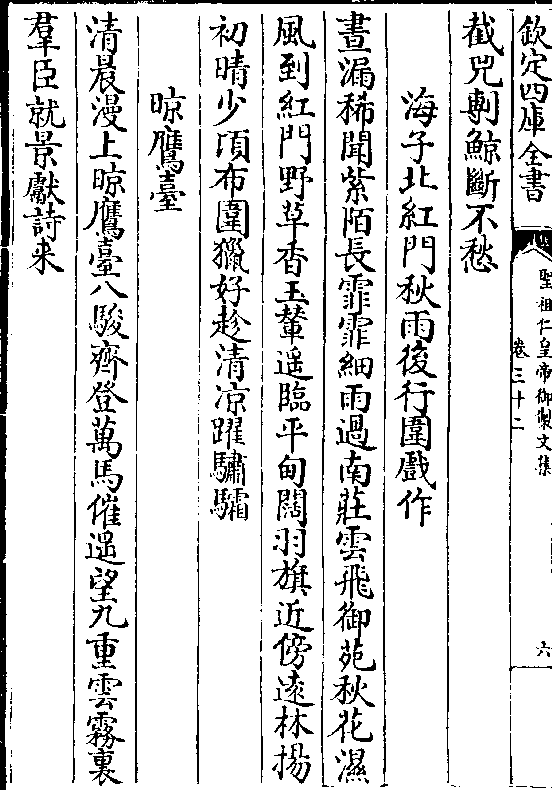 欽定四庫全書
聖祖仁皇帝御製文集
卷三十二
六
截兕剸鯨斷不愁
海子北紅門秋雨後行圍戲作
晝漏稀聞紫陌長霏霏細雨過南莊雲飛御苑秋花濕
風到紅門野草香玉輦遥臨平甸闊羽旗近傍遠林揚
初晴少頃布圍獵好趁清凉躍驌驦
晾鷹臺
清晨漫上晾鷹臺八駿齊登萬馬催遥望九重雲霧裏
羣臣就景獻詩来